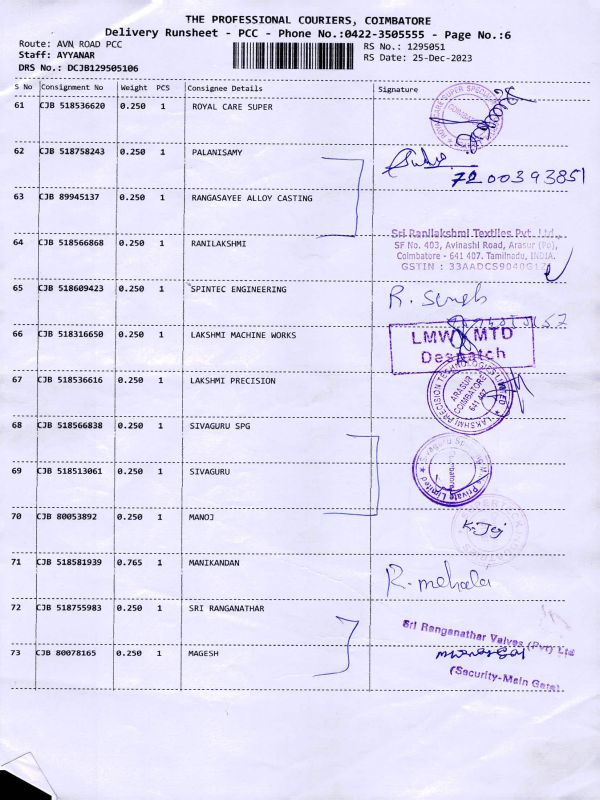 THE PROFESSIONAL COURIERS, COIMBATORE
Delivery Runsheet - PCC - Phone No.:0422-3505555 - Page No.:6
Route: AVN ROAD PCC
RS No.: 1295051
Staff: AYYANAR
RS Date: 25-Dec-2023
DRS No.: DCJB129505106
S No Consignment No Weight PCS Consignee Details Signature
61 CJB 518536620 0.250 1 ROYAL CARE SUPER
62 CJB 518758243 0.250 1 PALANISAMY
7200393851
63 CJB 89945137 0.250 1 RANGASAYEE ALLOY CASTING
Sri Ranilakshmi Textiles Pvt. Ltd.,
64 CJB 518566868 0.250 1 RANILAKSHMI SF No. 403, Avinashi Road, Arasur (Po),
Coimbatore - 641 407. Tamilnadu, INDIA.
GSTIN : 33AADCS9040G1Z
65 CJB 518609423 0.250 1 SPINTEC ENGINEERING R. Singh
66 CJB 518316650 0.250 1 LAKSHMI MACHINE WORKS LMW MTD
Despatch
67 CJB 518536616 0.250 1 LAKSHMI PRECISION
LAKSHMI PRECISION TECHNOLOGIES LIMITED
ARASUR
COIMBATORE
641 407
68 CJB 518566838 0.250 1 SIVAGURU SPG
69 CJB 518513061 0.250 1 SIVAGURU
Private Limited
70 CJB 80053892 0.250 1 MANOJ
71 CJB 518581939 0.765 1 MANIKANDAN R. mehala
72 CJB 518755983 0.250 1 SRI RANGANATHAR
Sri Ranganathar Valves (Pvt) Ltd
73 CJB 80078165 0.250 1 MAGESH
(Security-Main Gate)